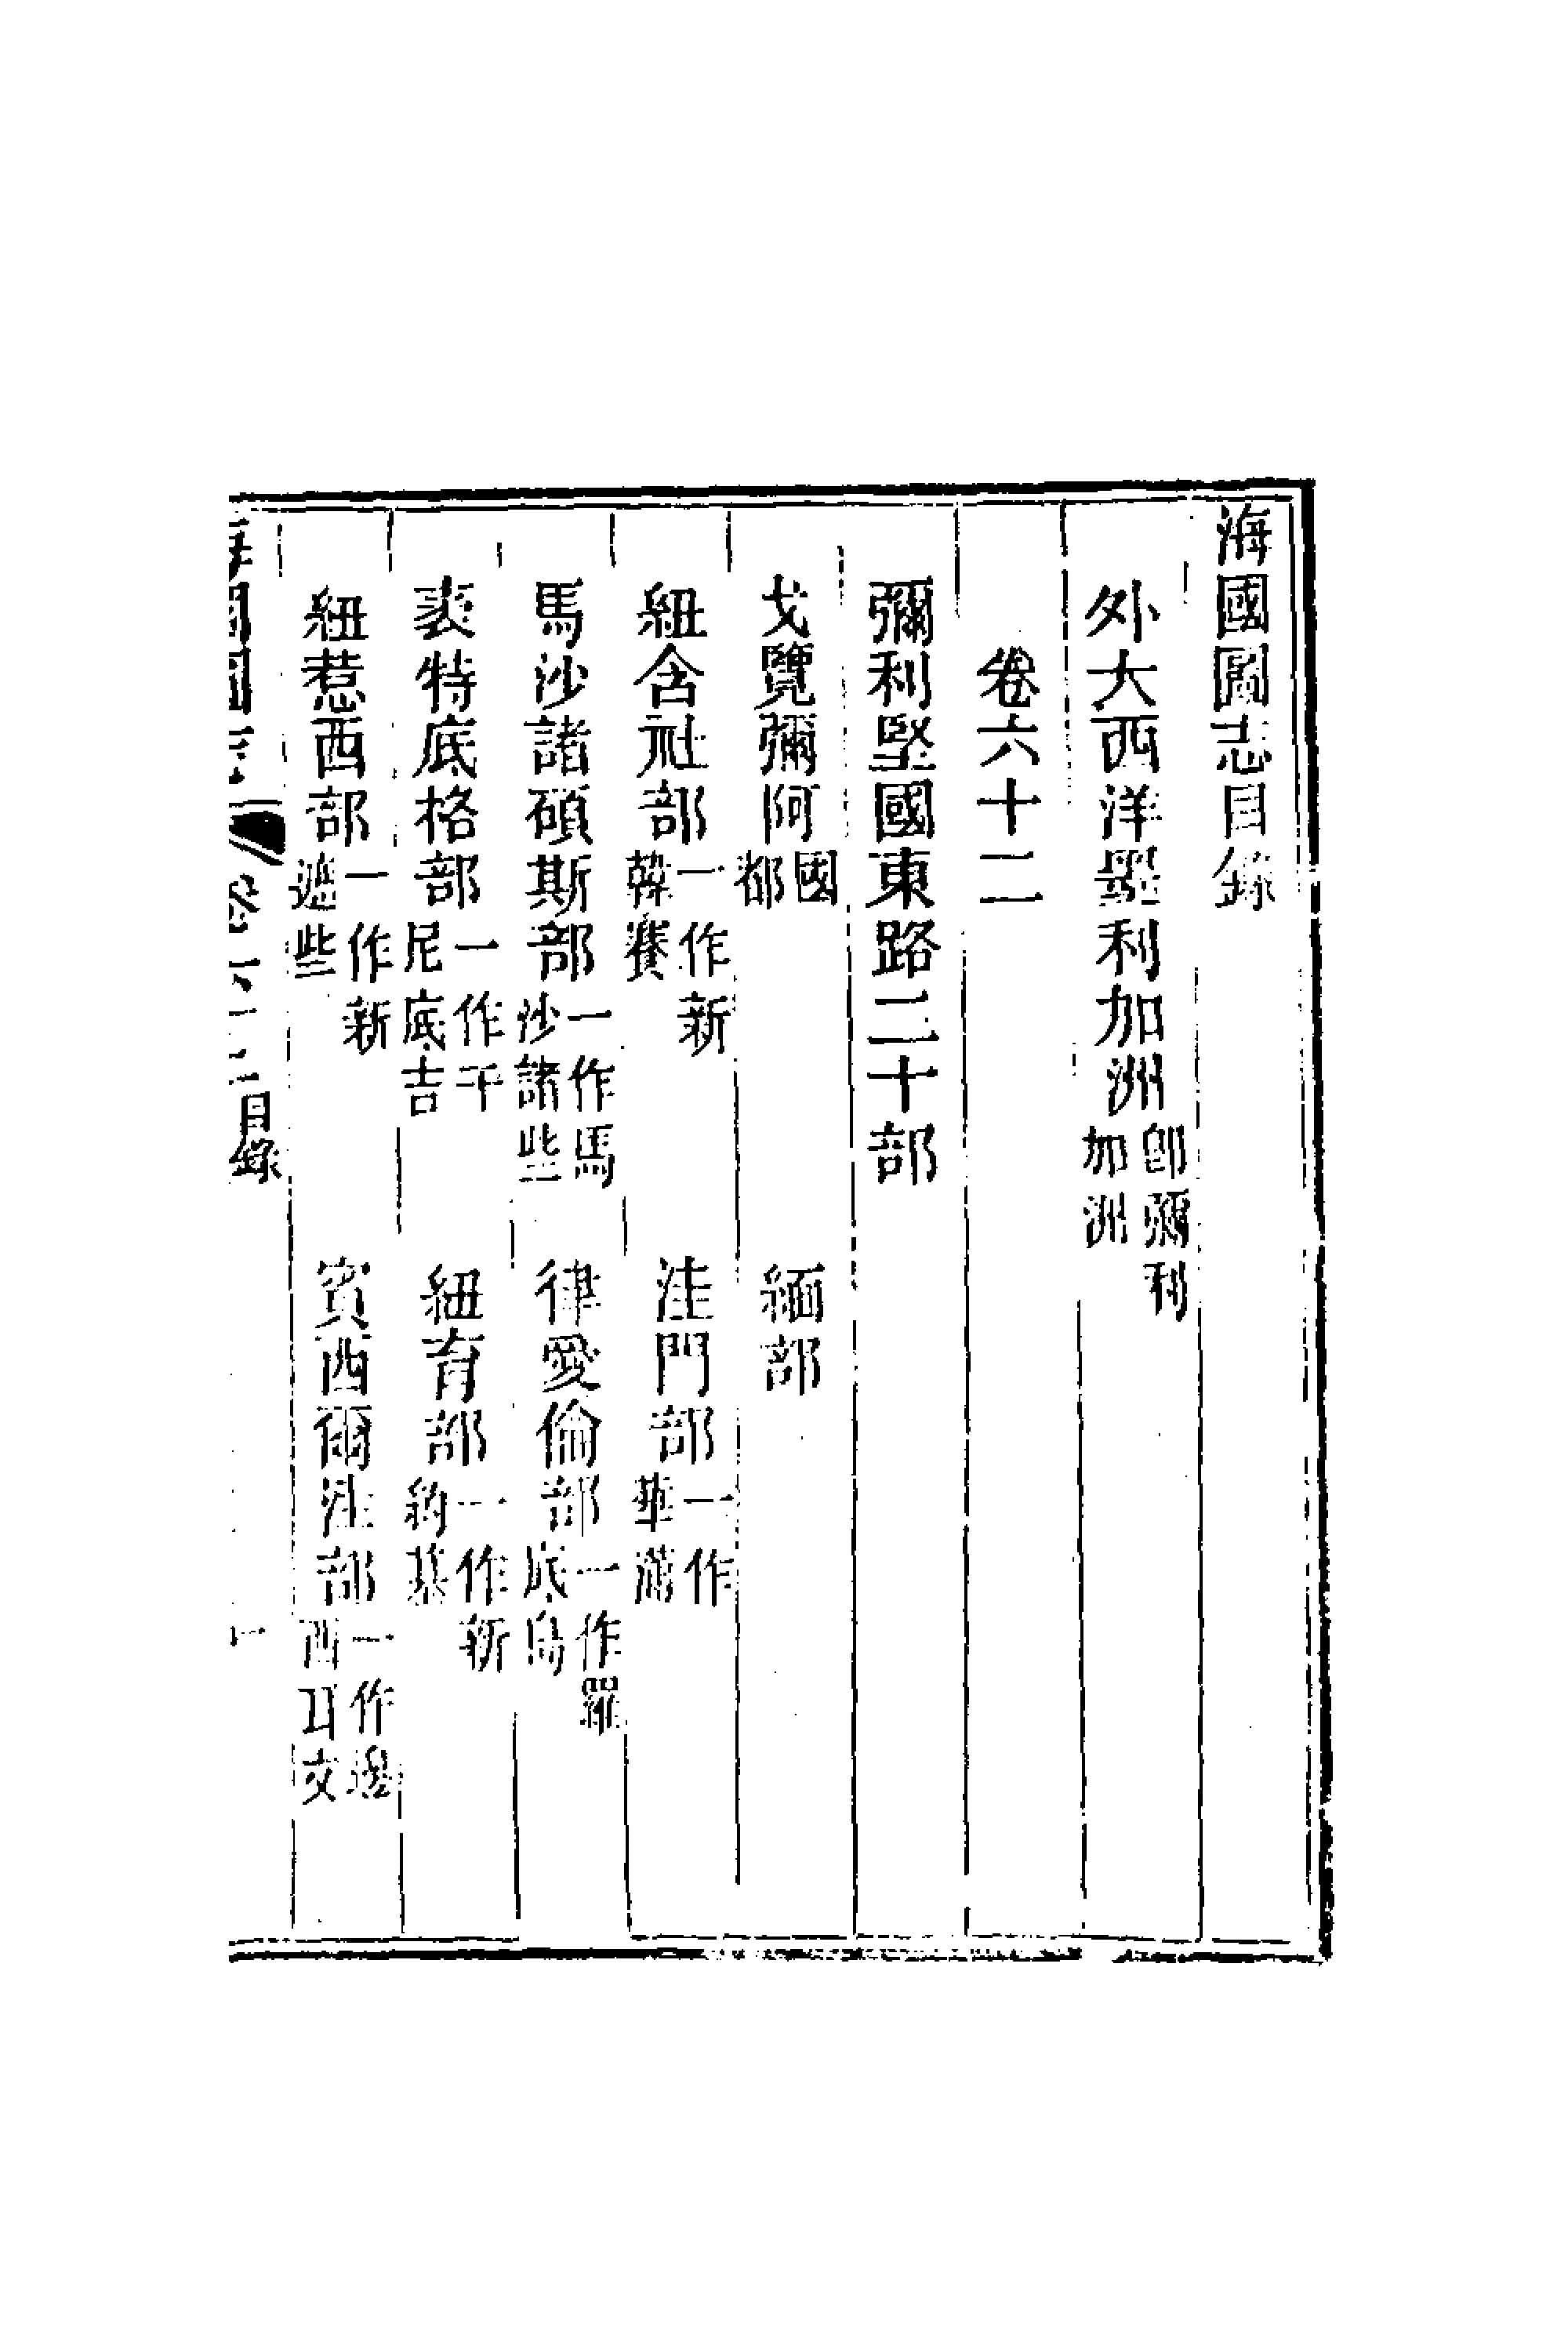 海國圖志目錄
外大西洋墨利加洲即彌利加洲
卷六十二
彌利堅國東路二十部
戈覽彌阿國都 緬部
紐含社部一作新韓賽 洼門部一作華滿
馬沙諸碩斯部一作馬沙諸些 律愛倫部一作羅底島
衮特底格部一作干尼底吉 紐育部一作新約基
紐惹西部一作新遮些 賓西爾洼部一作邊西耳文
海國圖志 卷六十二目錄 一